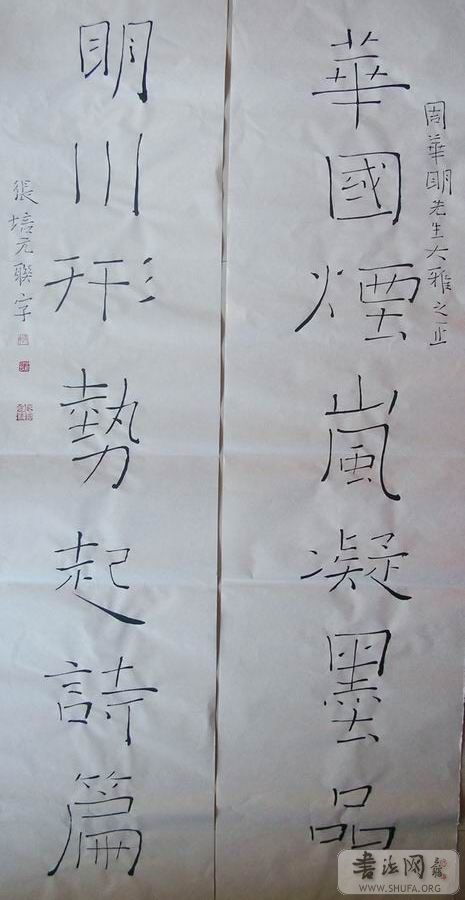 周華明先生大雅之正
華國煙嵐凝墨品
明川形勢起詩篇
張培元聯字
書法网
WWW.SHUFA.ORG